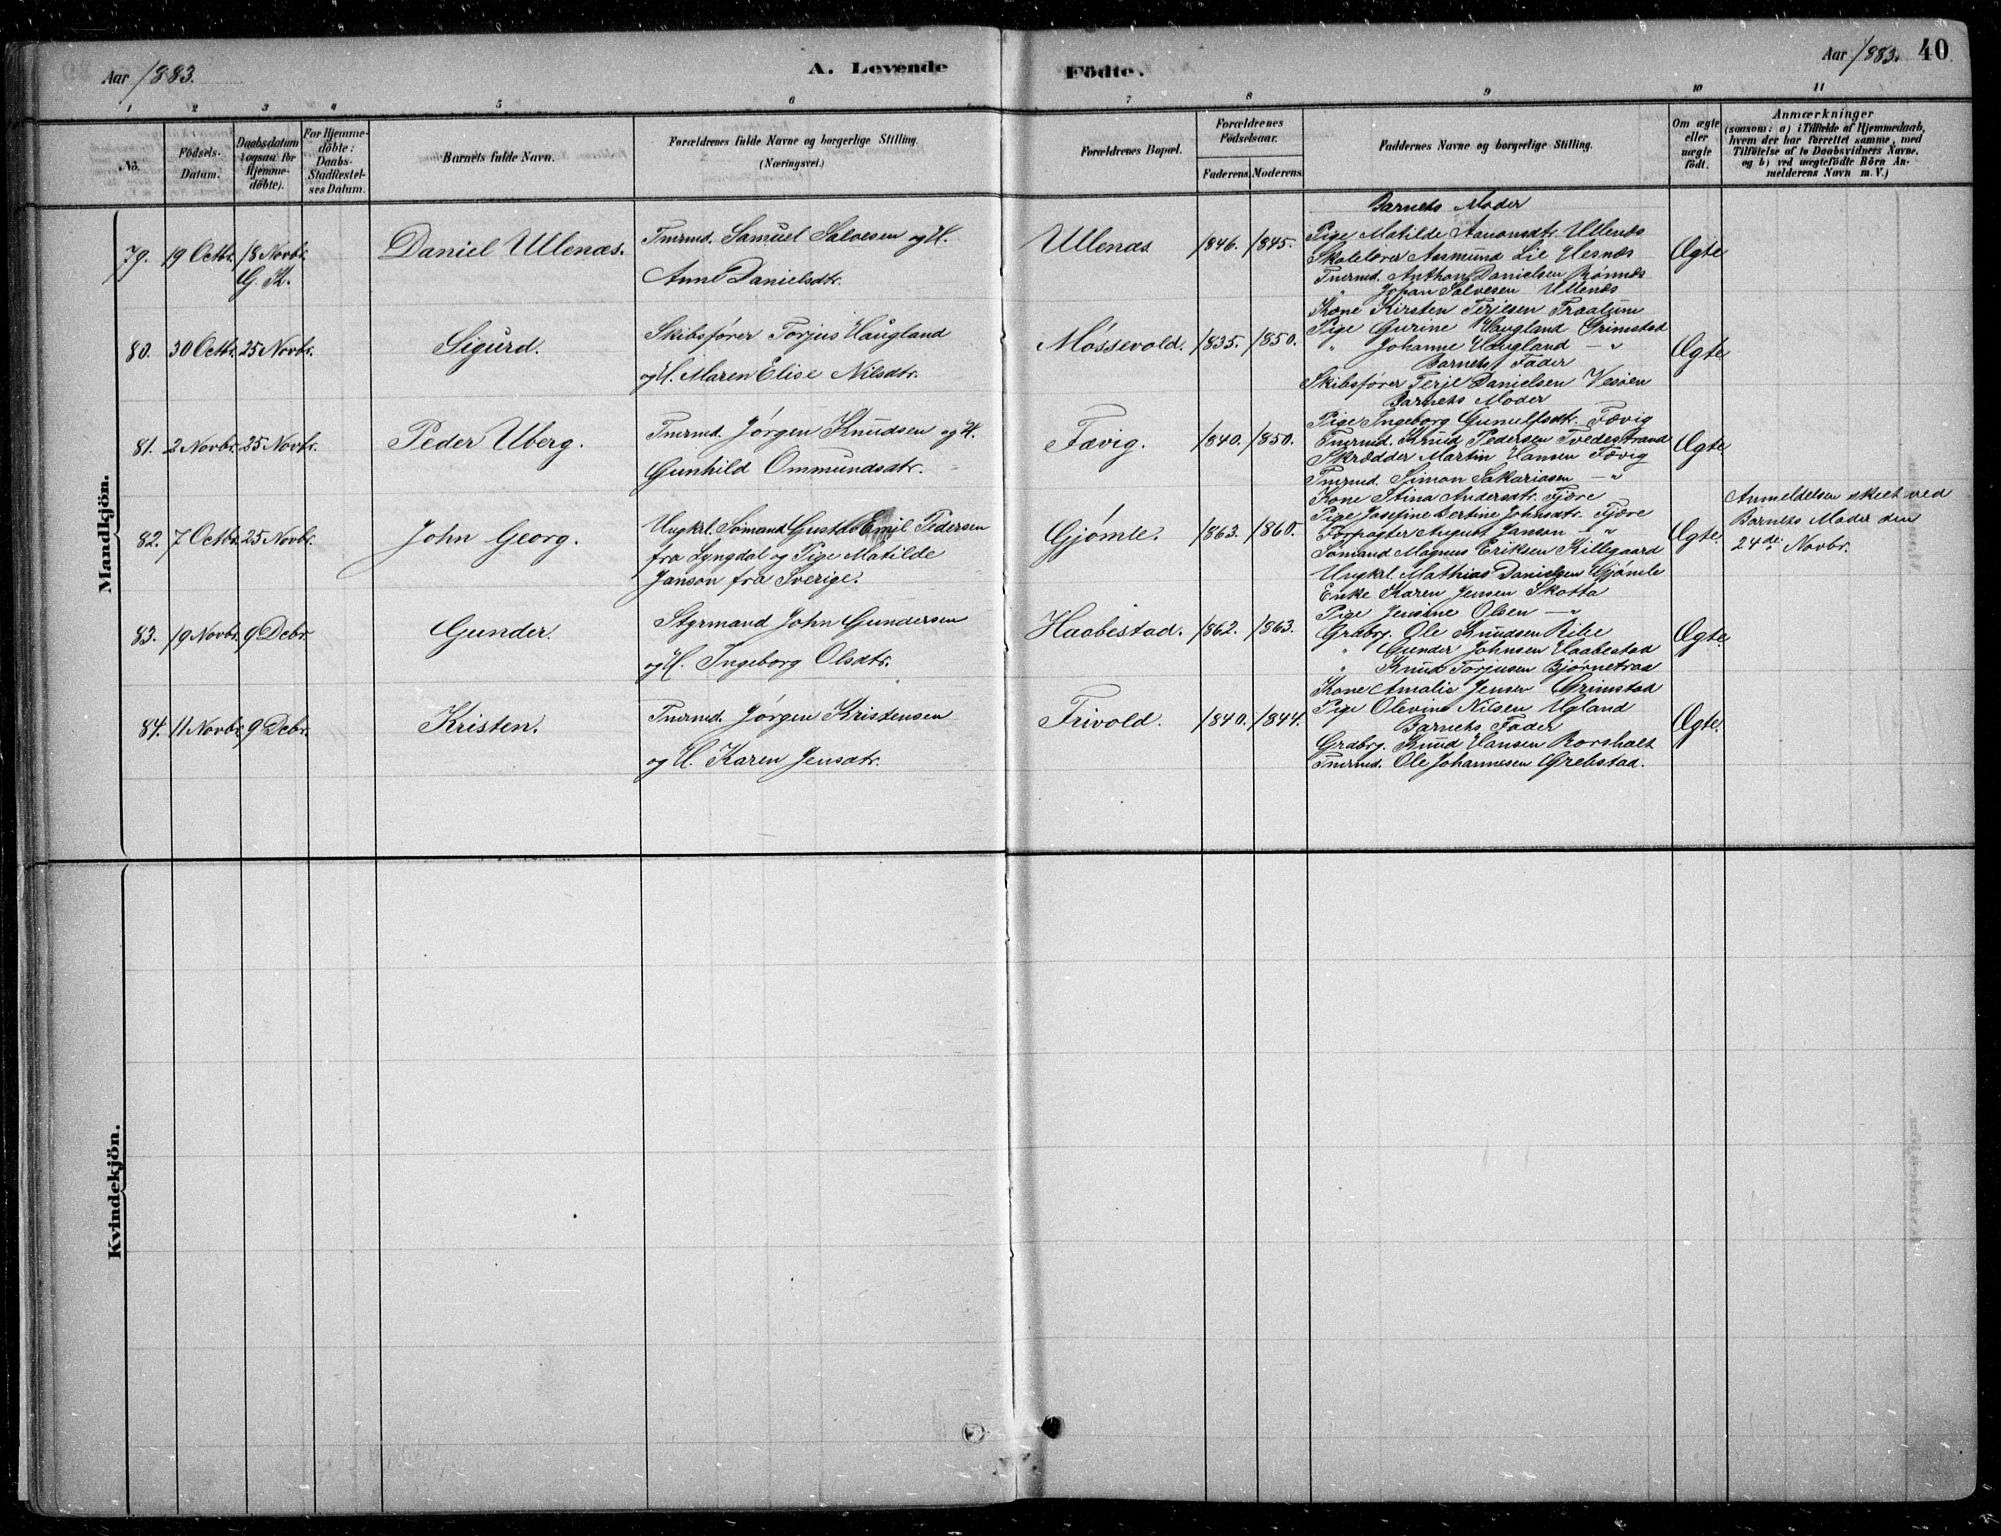 Aar 1883.
A. Levende Födte.
Aar 1883. 40
1 2 3 4 5 6 7 8 9 10 11
No.
Födsels-Datum.
Daabsdatum (ogsaa for Hjemmedöbte).
For Hjemmedöbte: Daabs-Stadfestelses Datum.
Barnets fulde Navn.
Forældrenes fulde Navne og borgerlige Stilling. (Næringsvei.)
Forældrenes Bopæl.
Forældrenes Födselsaar.
Faderens. Moderens.
Faddernes Navne og borgerlige Stilling.
Om ægte eller uægte födt.
Anmærkninger
(saasom: a) i Tilfælde af Hjemmedaab, hvem der har forrettet samme, med Tilföielse af to Daabsvidners Navne, og b) ved uægtefödte Börn Anmelderens Navn m. V.)
Mandkjön.
79. 19 Octbr. 18 Novbr. G. K. Daniel Ullenæs. Tmrmd. Samuel Salvesen og H.
Anne Danielsdtr.
Ullenæs 1846. 1845.
Barnets Moder
Pige Matilde Aanonsdtr. Ullenæs
Skolelærer Aasmund Lie Hesnæs
Tmrmd. Anthon Danielsen Rønnæs
" Johan Salvesen Ullenæs
Ægte
80. 30 Octbr. 25 Novbr. Sigurd. Skibsfører Torjus Haugland
og H. Maren Elise Nilsdtr.
Mossevold. 1835. 1850.
Kone Kirsten Terjesen Traalum
Pige Gurine Haugland Grimstad
" Johanne Haugland — "
Barnets Fader
Skibsfører Terje Danielsen Vesøen
Ægte
81. 2 Novbr. 25 Novbr. Peder Uberg. Tmrmd. Jørgen Knudsen og H.
Gunhild Ommundsdtr.
Fævig. 1840. 1850.
Barnets Moder
Pige Ingeborg Gunulfsdtr. Fævig
Tmrmd. Knud Pedersen Tvedestrand
Skrædder Martin Hansen Fævig
Tmrmd. Simon Sakariasen — "
Ægte
82. 7 Octbr. 25 Novbr. John Georg. Ungkrl. Sømand Gustav Emil Pedersen
fra Lyngdal og Pige Matilde
Janson fra Sverige.
Gjømle. 1863. 1860.
Kone Stina Andersdtr. Fjære
Pige Josefine Bertine Johnsdtr. Fjære
Forpagter August Janson "
Sømand Magnus Eriksen Killegaard
Ungkrl. Mathias Danielsen Gjømle
Ægte.
Anmeldelsen skeet ved
Barnets Moder den
24de Novbr.
83. 19 Novbr. 9 Debr. Gunder. Styrmand John Gundersen
og H. Ingeborg Olsdtr.
Haabestad. 1862. 1863.
Enke Karen Jensen Skotta
Pige Jensine Olsen — "
Grdbrg. Ole Knudsen Ribe
" Gunder Johnsen Haabestad
" Knud Torjusen Bjørnetraa
Ægte.
84. 11 Novbr. 9 Debr. Kristen. Tmrmd. Jørgen Kristensen
og H. Karen Jensdtr.
Frivold. 1840. 1844.
Kone Amalie Jensen Grimstad
Pige Olevine Nilsen Ugland
Barnets Fader
Grdbrg. Knud Hansen Rorsholt
Tmrmd. Ole Johannesen Grebstad.
Ægte.
Kvindekjön.